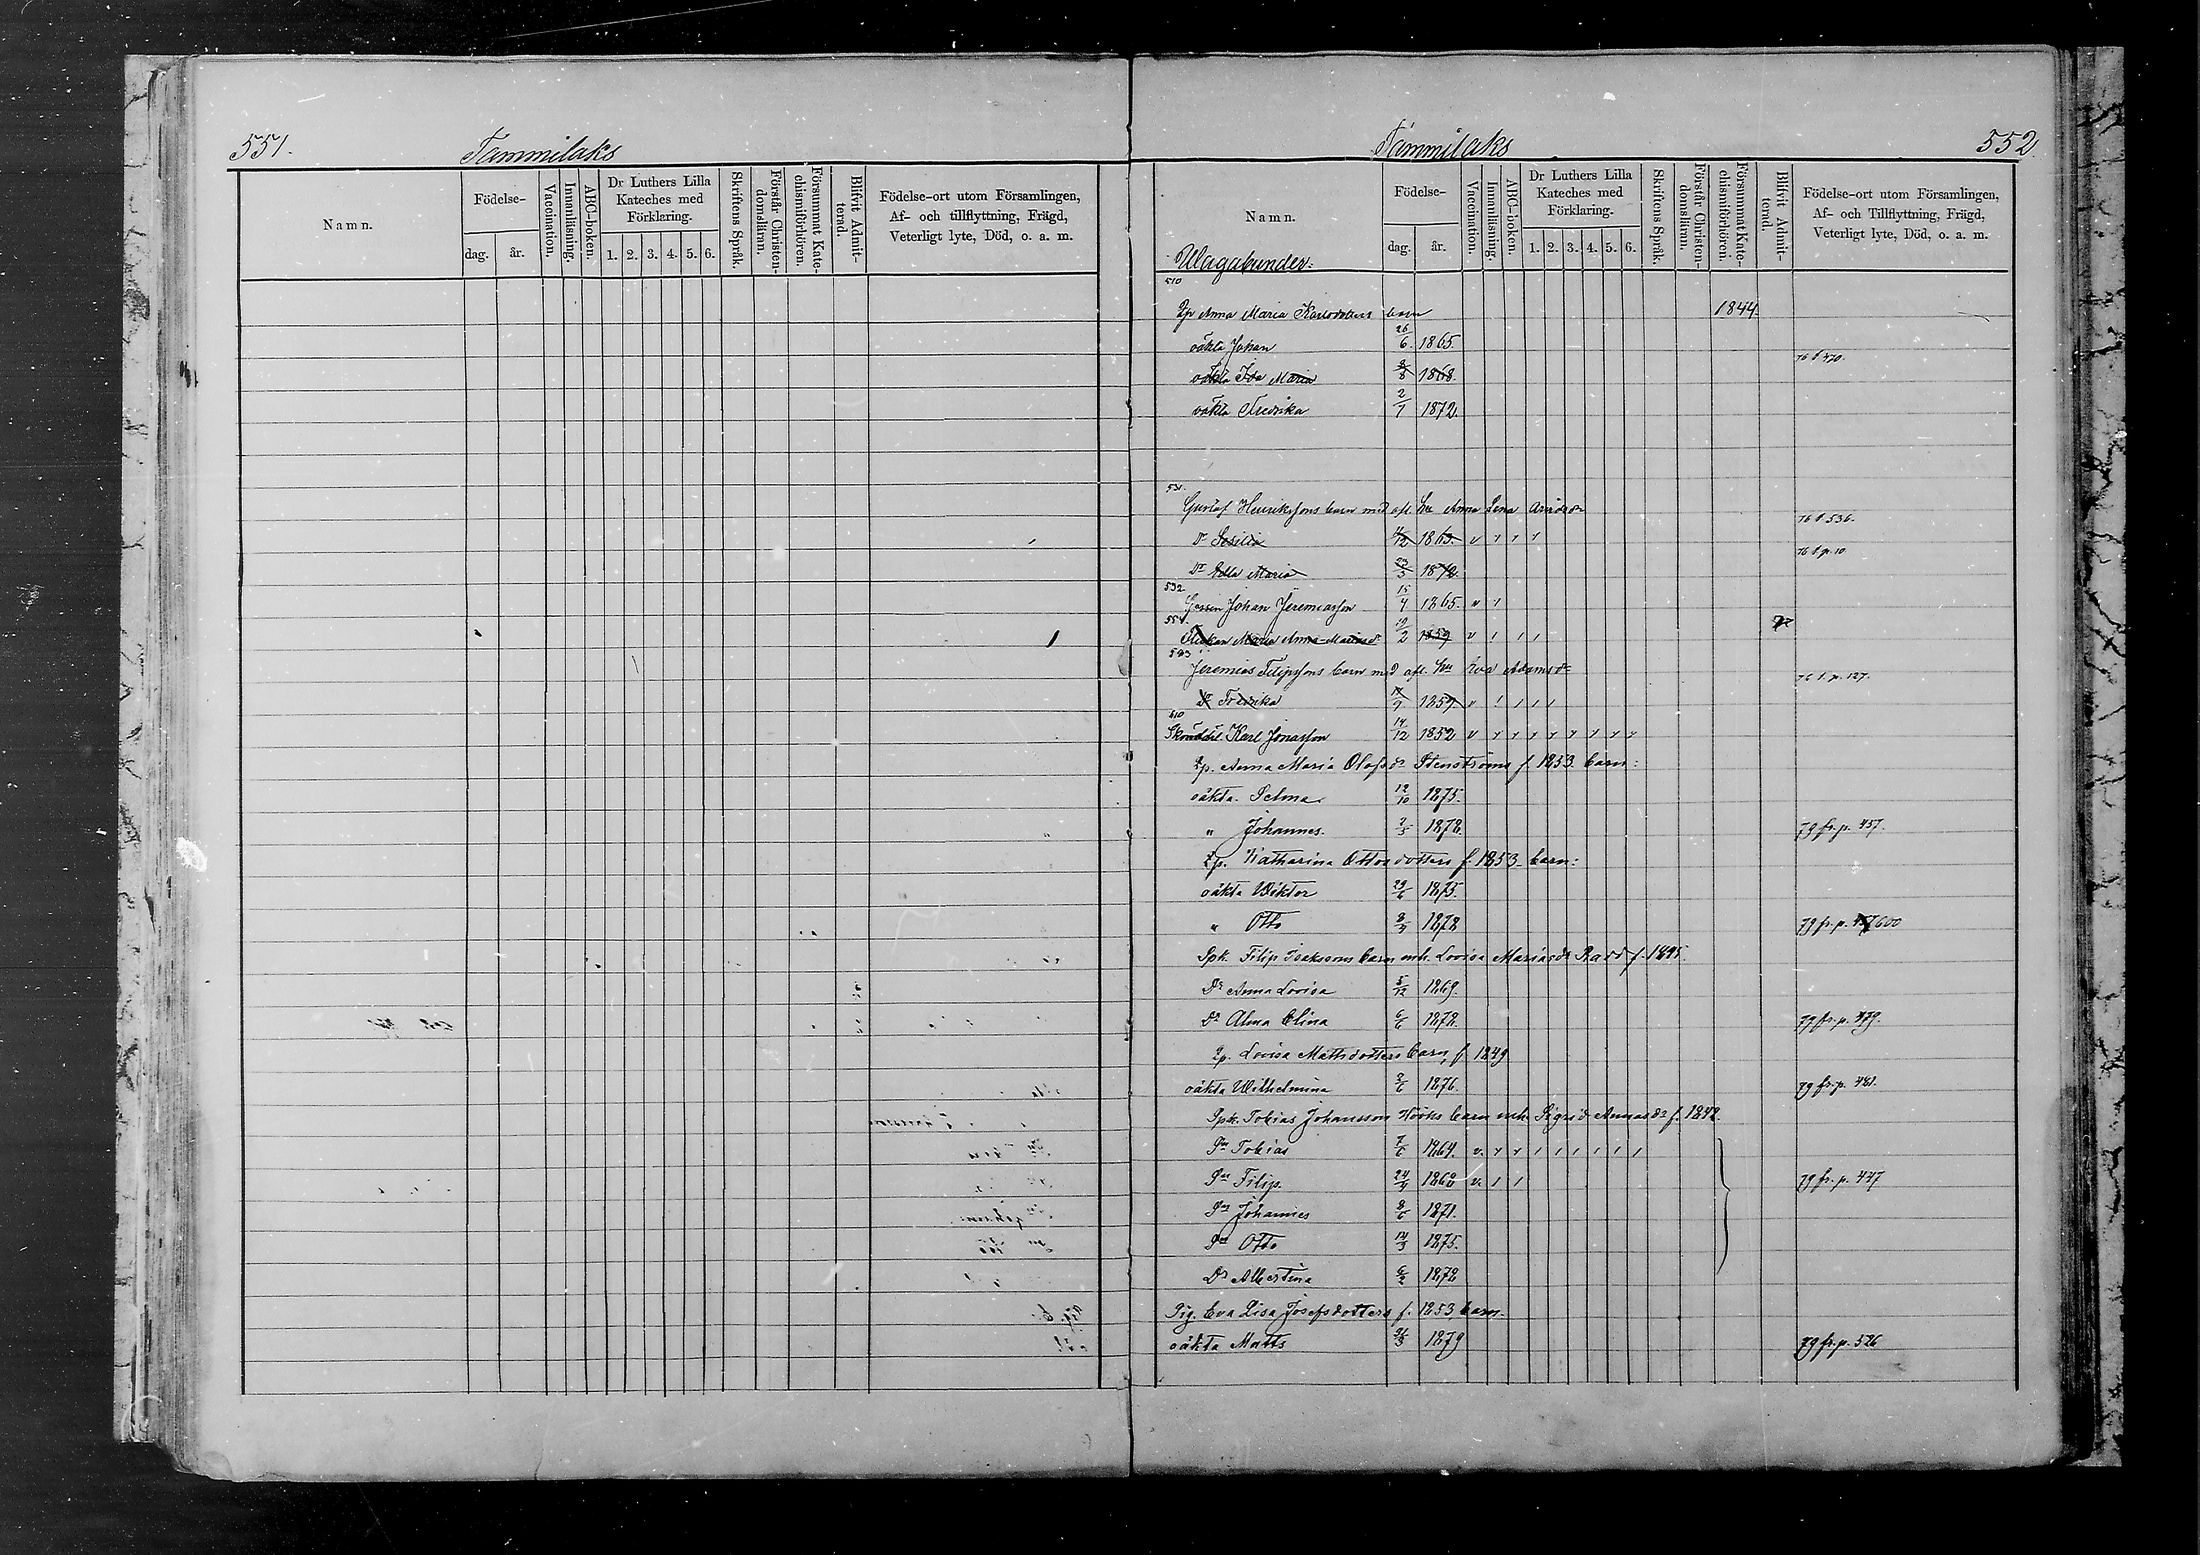 551.
Tammilaks
Namn.
Födelse-
dag.
år.
Vaccination.
Innanläsning.
ABC-boken.
Dr Luthers Lilla Kateches med Förklaring.
1. 2. 3. 4. 5. 6.
Skriftens Språk.
Förstår Christendomsläran.
Försummat Katechismiförhören.
Blifvit Admitterad.
Födelse-ort utom Församlingen,
Af- och tillflyttning, Frägd,
Veterligt lyte, Död, o. a. m.
Tammilaks
552
Namn.
Födelse-
dag.
år.
Vaccination.
Innanläsning.
ABC-boken.
Dr Luthers Lilla Kateches med Förklaring.
1. 2. 3. 4. 5. 6.
Skriftens Språk.
Förstår Christendomsläran.
Försummat Katechismiförhören.
Blifvit Admitterad.
Födelse-ort utom Församlingen,
Af- och Tillflyttning, Frägd,
Veterligt lyte, Död, o. a. m.
510
Anna Maria Karlsdotters barn 1844
oäkta Johan 26/6 1865.
oäkta Ida Maria 1868. 76 t 470.
oäkta Fredrika 2/7 1872.
531.
Gustaf Henrikssons barn med afl. hu Anna Lena
Dr 1863. v 76 t 536.
Dr Maria 23/5 1872. 76 t. p. 10.
532
Gossen Johan Jeremiasson 15/4 1865. v
551.
Flickan Maria Anna-Mariasdr 19/2 1859 v
543
Jeremias Filipssons barn med afl. hu Eva Adamsdr
Dr Fredrika 1859. v 76 t. p. 127.
610
Karl Jonasson 14/12 1852 v
Qp. Anna Maria Olofsdr Stenströms f. 1853. barn:
oäkta. Selma. 12/10 1875.
" Johannes. 2/5 1878. 79 fr. p. 457.
Qp. Katharina Ottosdotters f. 1853 barn:
oäkta Viktor 29/6 1875.
" Otto 1878 79 fr. p. 600
Spk. Filip Isakssons barn mh. Lovisa Mariasdr
Dr Anna Lovisa 5/12 1869.
Dr Alma Elina 6/6 1878. 79 fr. p. 479.
Qp. Lovisa Mattsdotters barn f. 1849
oäkta Wilhelmina 1876. 79 fr. p. 481.
Spk. Tobias Johansson Hööks barn mh. Sigrid Annasdr f. 1842.
Sn Tobias 7/6 1864. v.
Sn Filip. 24/4 1868 v. 79 fr. p. 447
Sn Johannes 1871.
Sn Otto 1875.
Dr Albertina 6/2 1878
Pig. Eva Lisa Josefsdotters f. 1853 barn.
oäkta Matts 1879 79 fr. p. 526